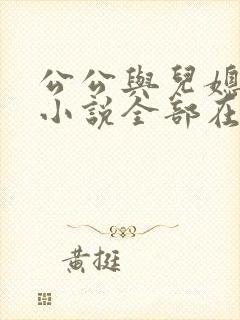 公公與兒媳
小說全部在
黃挺